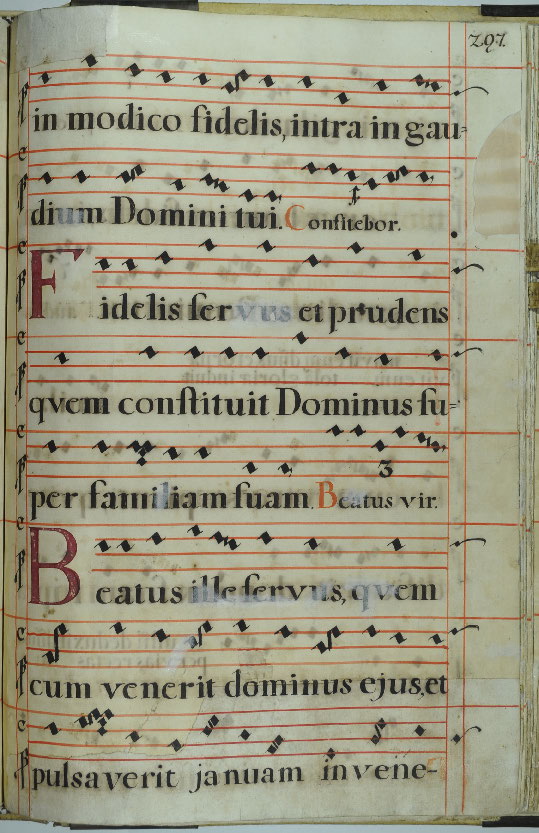 297.
in modico fidelis, intra in gau-
dium Domini tui. Confitebor.
Fidelis servus et prudens
quem constituit Dominus su-
per familiam suam. Beatus vir.
3
Beatus ille servus, quem
cum venerit dominus ejus, et
pulsaverit januam invene-